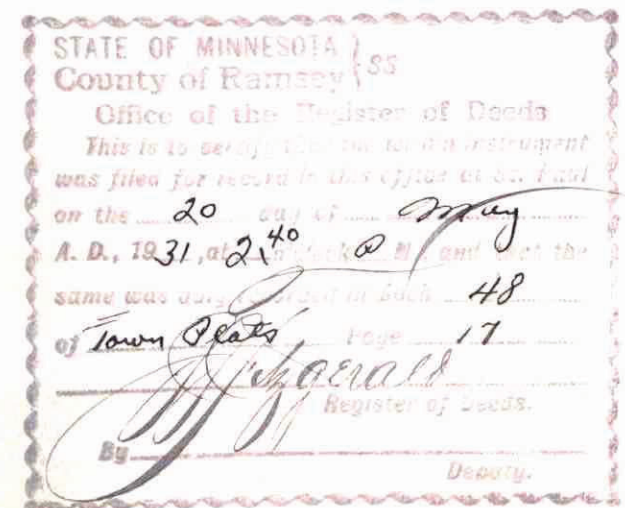 STATE OF MINNESOTA } SS
County of Ramsey
Office of the Register of Deeds
This is to certify that the within instrument
was filed for record in this office at St. Paul
on the 20 day of May
A. D., 1931, at 2:40 o'clock P M. and that the
same was duly recorded in Book 48
of Town Plats Page 17
Fitzgerald
Register of Deeds.
By
Deputy.